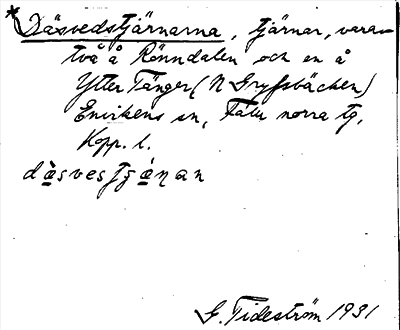 *Däsvedstjärnarna, tjärnar, varav
två å Rönndalen och en å
Ytter Tänger (N Gryssbäcken)
Envikens sn, Falu norra tg,
Kopp. l.
G. Tideström 1931